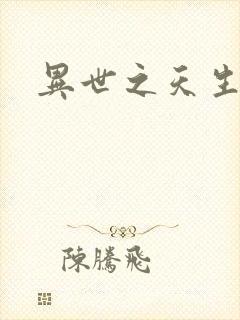 異世之天生
陳騰飛